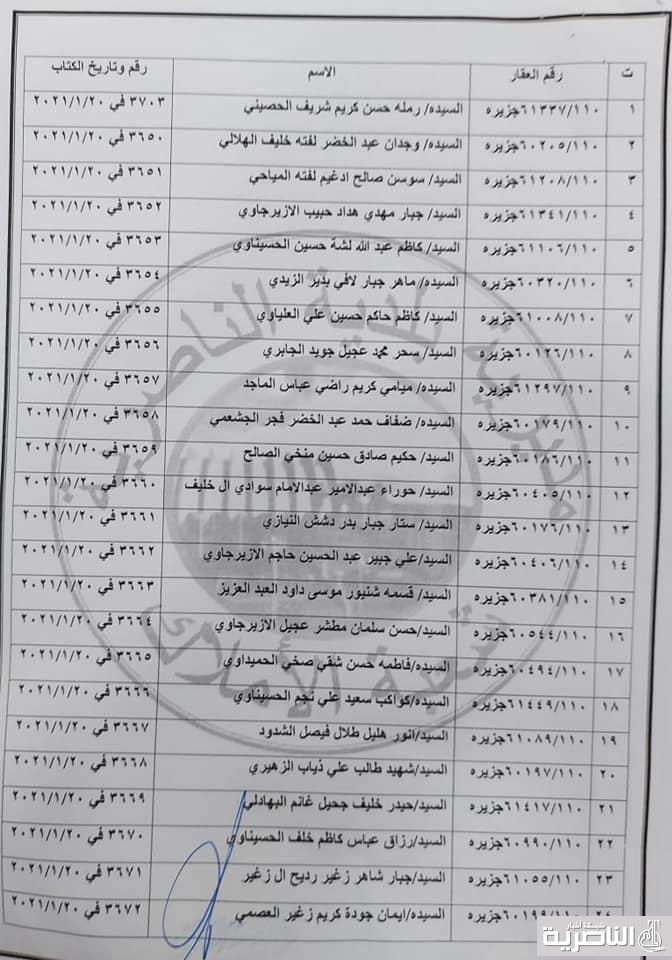 ت رقم العقار الاسم رقم وتاريخ الكتاب
١ ٦١٣٣٧/١١٠جزيره السيده/ رمله حسن كريم شريف الحصيني ٣٧٠٣ في ٢٠٢١/١/٢٠
٢ ٦٠٢٠٥/١١٠جزيره السيده/ وجدان عبد الخضر لفته خليف الهلالي ٣٦٥٠ في ٢٠٢١/١/٢٠
٣ ٦١٢٠٨/١١٠جزيره السيد/ سوسن صالح ادغيم لفته المياحي ٣٦٥١ في ٢٠٢١/١/٢٠
٤ ٦١٣٤١/١١٠جزيره السيد/ جبار مهدي هداد حبيب الازيرجاوي ٣٦٥٢ في ٢٠٢١/١/٢٠
٥ ٦١١٠٦/١١٠جزيره السيد/ كاظم عبد الله لشة حسين الحسيناوي ٣٦٥٣ في ٢٠٢١/١/٢٠
٦ ٦٠٣٢٠/١١٠جزيره السيده/ ماهر جبار لافي بدير الزيدي ٣٦٥٤ في ٢٠٢١/١/٢٠
٧ ٦١٠٠٨/١١٠جزيره السيد/ كاظم حاكم حسين علي العلياوي ٣٦٥٥ في ٢٠٢١/١/٢٠
٨ ٦٠١٢٦/١١٠جزيره السيد/ سحر محمد عجيل جويد الجابري ٣٦٥٦ في ٢٠٢١/١/٢٠
٩ ٦١٢٩٧/١١٠جزيره السيده/ ميامي كريم راضي عباس الماجد ٣٦٥٧ في ٢٠٢١/١/٢٠
١٠ ٦٠١٧٩/١١٠جزيره السيده/ ضفاف حمد عبد الخضر فجر الجشعمي ٣٦٥٨ في ٢٠٢١/١/٢٠
١١ ٦٠١٨٦/١١٠جزيره السيد/ حكيم صادق حسين منخي الصالح ٣٦٥٩ في ٢٠٢١/١/٢٠
١٢ ٦٠٤٠٥/١١٠جزيره السيد/ حوراء عبدالامير عبدالامام سوادي ال خليف ٣٦٦٠ في ٢٠٢١/١/٢٠
١٣ ٦٠١٧٦/١١٠جزيره السيد/ ستار جبار بدر دشش النيازي ٣٦٦١ في ٢٠٢١/١/٢٠
١٤ ٦٠٤٠٦/١١٠جزيره السيد/علي جبير عبد الحسين حاجم الازيرجاوي ٣٦٦٢ في ٢٠٢١/١/٢٠
١٥ ٦٠٣٨١/١١٠جزيره السيد/ قسمه شنيور موسى داود العبد العزيز ٣٦٦٣ في ٢٠٢١/١/٢٠
١٦ ٦٠٥٤٤/١١٠جزيره السيد/حسن سلمان مطشر عجيل الازيرجاوي ٣٦٦٤ في ٢٠٢١/١/٢٠
١٧ ٦٠٤٩٤/١١٠جزيره السيده/فاطمه حسن شقي صخي الحميداوي ٣٦٦٥ في ٢٠٢١/١/٢٠
١٨ ٦١٤٤٩/١١٠جزيره السيده/كواكب سعيد علي نجم الحسيناوي ٣٦٦٦ في ٢٠٢١/١/٢٠
١٩ ٦١٠٨٩/١١٠جزيره السيد/انور هليل طلال فيصل الشدود ٣٦٦٧ في ٢٠٢١/١/٢٠
٢٠ ٦٠١٩٧/١١٠جزيره السيد/شهيد طالب علي ذياب الزهيري ٣٦٦٨ في ٢٠٢١/١/٢٠
٢١ ٦١٤١٧/١١٠جزيره السيد/حيدر خليف جحيل غانم البهادلي ٣٦٦٩ في ٢٠٢١/١/٢٠
٢٢ ٦٠٩٩٠/١١٠جزيره السيد/رزاق عباس كاظم خلف الحسيناوي ٣٦٧٠ في ٢٠٢١/١/٢٠
٢٣ ٦١٠٥٥/١١٠جزيره السيد/جبار شاهر زغير رديح ال زغير ٣٦٧١ في ٢٠٢١/١/٢٠
٢٤ ٦٠١٩٩/١١٠جزيره السيده/ايمان جودة كريم زغير العصمي ٣٦٧٢ في ٢٠٢١/١/٢٠
مديرية بلدية الناصرية
شعبة الأملاك
شبكة أخبار
الناصرية